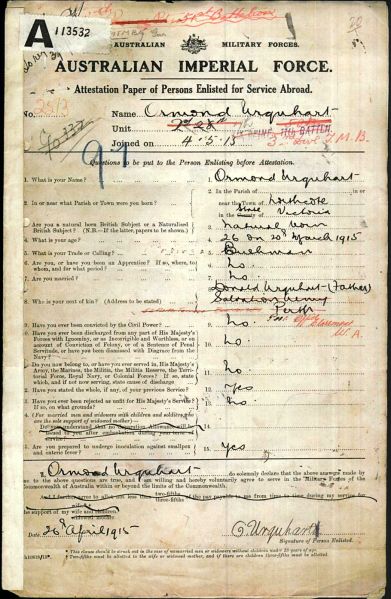 A 113532
AUSTRALIAN MILITARY FORCES.
AUSTRALIAN IMPERIAL FORCE.
Attestation Paper of Persons Enlisted for Service Abroad.
No. Name Ormond Urquhart
Unit
Joined on 4-5-15
Questions to be put to the Person Enlisting before Attestation.
1. What is your Name? 1. Ormond Urquhart
2. In or near what Parish or Town were you born? 2. In the Parish of in or near the Town of Northcote in the State Victoria
3. Are you a natural born British Subject or a Naturalised British Subject? (N.B.—If the latter, papers to be shown.) 3. Natural born
4. What is your age? 4. 26 on 20th March 1915
5. What is your Trade or Calling? 5. Bushman
6. Are you, or have you been an Apprentice? If so, where, to whom, and for what period? 6. No.
7. Are you married? 7. No.
8. Who is your next of kin? (Address to be stated) 8. Donald Urquhart (Father)
Salvation Army
Perth
W.A.
9. Have you ever been convicted by the Civil Power? 9. No.
10. Have you ever been discharged from any part of His Majesty's Forces with Ignominy, or as Incorrigible and Worthless, or on account of Conviction of Felony, or of a Sentence of Penal Servitude, or have you been dismissed with Disgrace from the Navy? 10. No
11. Do you now belong to, or have you ever served in, His Majesty's Army, the Marines, the Militia, the Militia Reserve, the Territorial Force, Royal Navy, or Colonial Forces? If so, state which, and if not now serving, state cause of discharge 11. No
12. Have you stated the whole, if any, of your previous Service? 12. Yes
13. Have you ever been rejected as unfit for His Majesty's Service? If so, on what grounds? 13. No.
14. (For married men and widowers with children and soldiers who are the sole support of widowed mother)—
Do you understand that no Separation Allowance will be issued to you after embarkation during your term of service? 14.
15. Are you prepared to undergo inoculation against smallpox and enteric fever? 15. Yes
I, Ormond Urquhart do solemnly declare that the above answers made by me to the above questions are true, and I am willing and hereby voluntarily agree to serve in the Military Forces of the Commonwealth of Australia within or beyond the limits of the Commonwealth.
And I further agree to allot not less than two-fifths three-fifths of the pay payable to me from time to time during my service for the support of my wife and children. widowed mother.
Date 30th April 1915
O. Urquhart
Signature of Person Enlisted.
* This clause should be struck out in the case of unmarried men or widowers without children under 18 years of age.
† Two-fifths must be allotted to the wife or widowed mother, and if there are children three-fifths must be allotted.